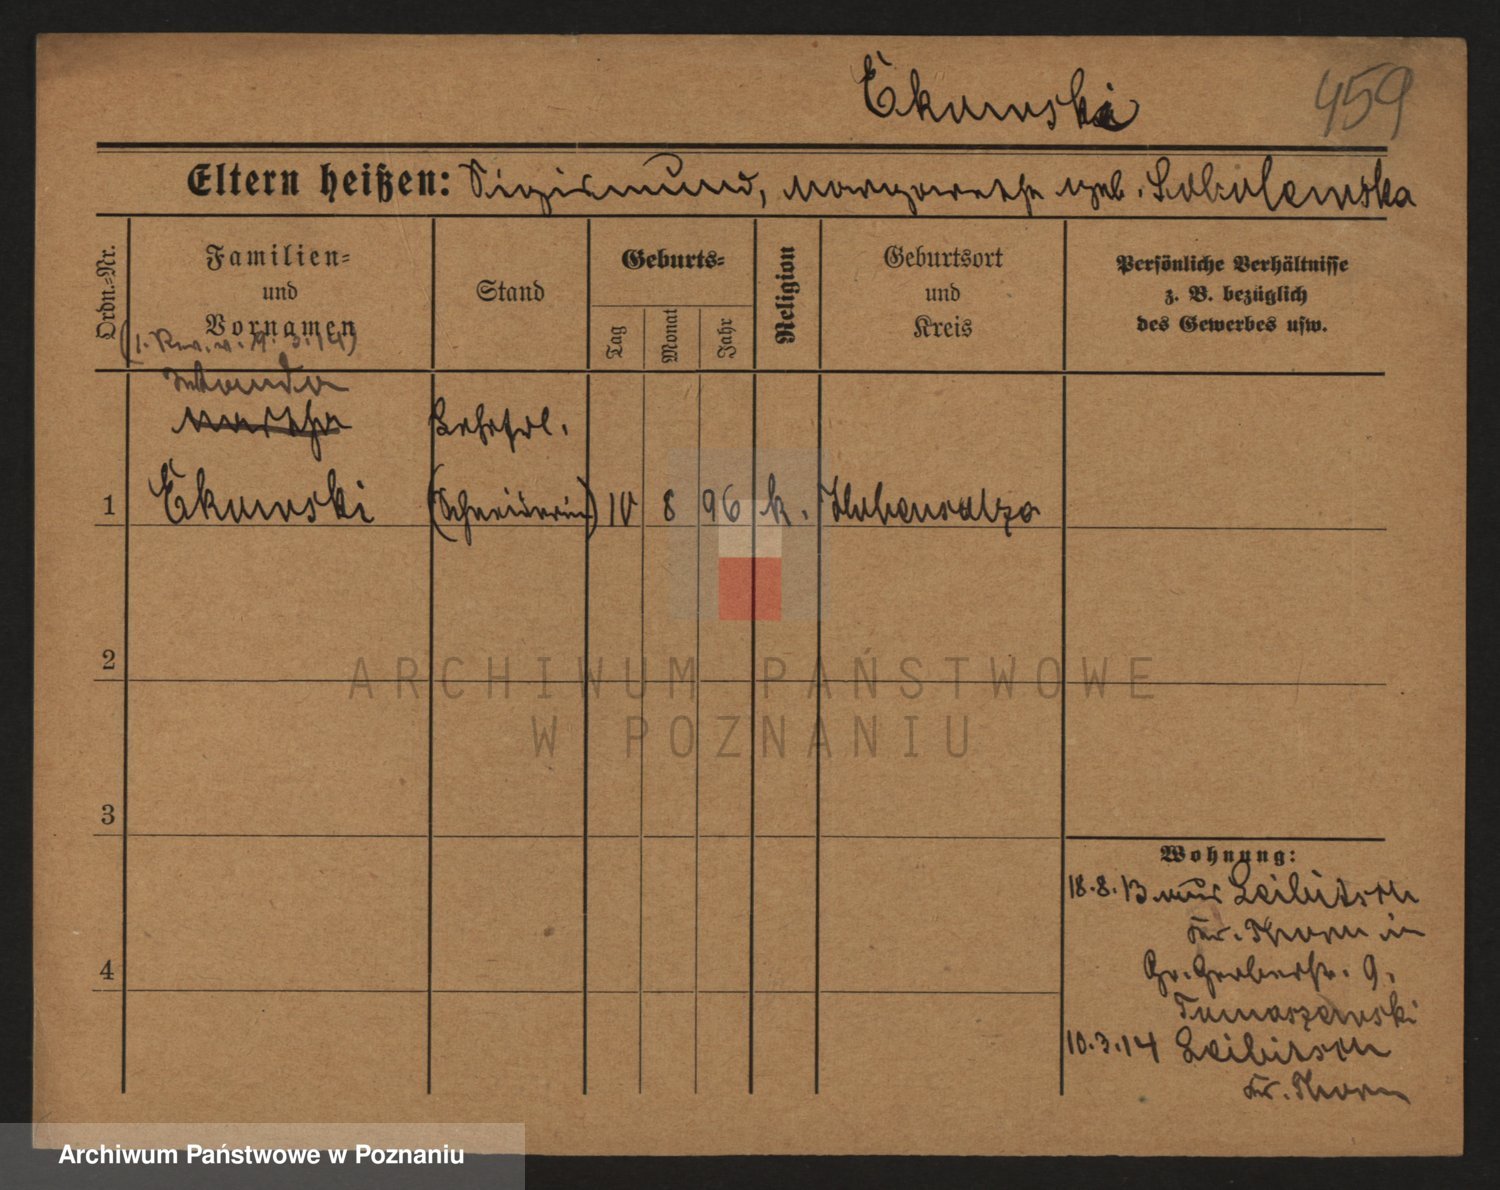 Ekowski
459
Eltern heißen: Sigismund, Margarethe geb. Sobolewska
Ordn.-Nr.
Familien-
und
Vornamen
Stand
Geburts-
Tag
Monat
Jahr
Religion
Geburtsort
und
Kreis
Persönliche Verhältnisse
z. B. bezüglich
des Gewerbes usw.
Wanda
Martha
1 Ekowski (Schneiderin) 10 8 96 k. Hohensalza
2
3
4
Wohnung:
18.8.13 aus Leibitsch
Kr. Thorn in
Gr. Gerberstr. 9.
Tomaszewski
10.3.14 Leibitsch
Kr. Thorn
ARCHIWUM PAŃSTWOWE
W POZNANIU
Archiwum Państwowe w Poznaniu